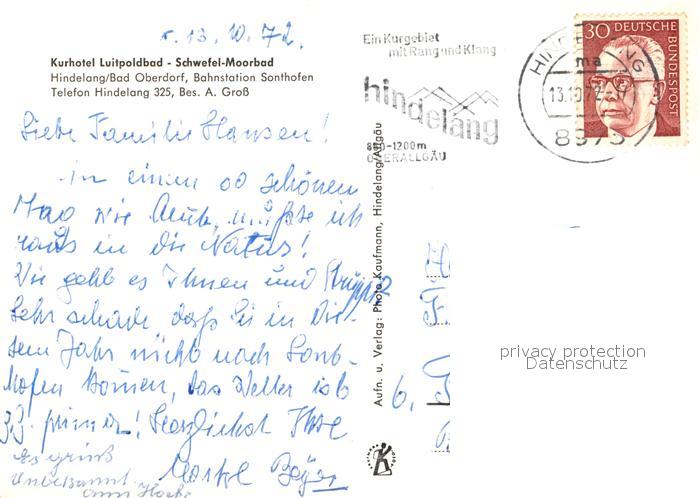 13.10.72.
Kurhotel Luitpoldbad - Schwefel-Moorbad
Hindelang/Bad Oberdorf, Bahnstation Sonthofen
Telefon Hindelang 325, Bes. A. Groß
Liebe Familie Hansen!
in einem so schönen
Tag wie heute, mußte ich
raus in die Natur!
Wie geht es Ihnen und Struppi?
Sehr schade daß Sie in die-
sem Jahr nicht nach Sont-
hofen kommen, das Wetter ist
z.Z. prima! Herzlichst Ihre
Es grüßt
Unbekannt
Aufn. u. Verlag: Photo Kaufmann, Hindelang/Allgäu
Ein Kurgebiet
mit Rang und Klang
hindelang
850-1200m
OBERALLGÄU
HINDELANG
ma
13.10.72
8973
30 DEUTSCHE
BUNDESPOST
6.
privacy protection
Datenschutz